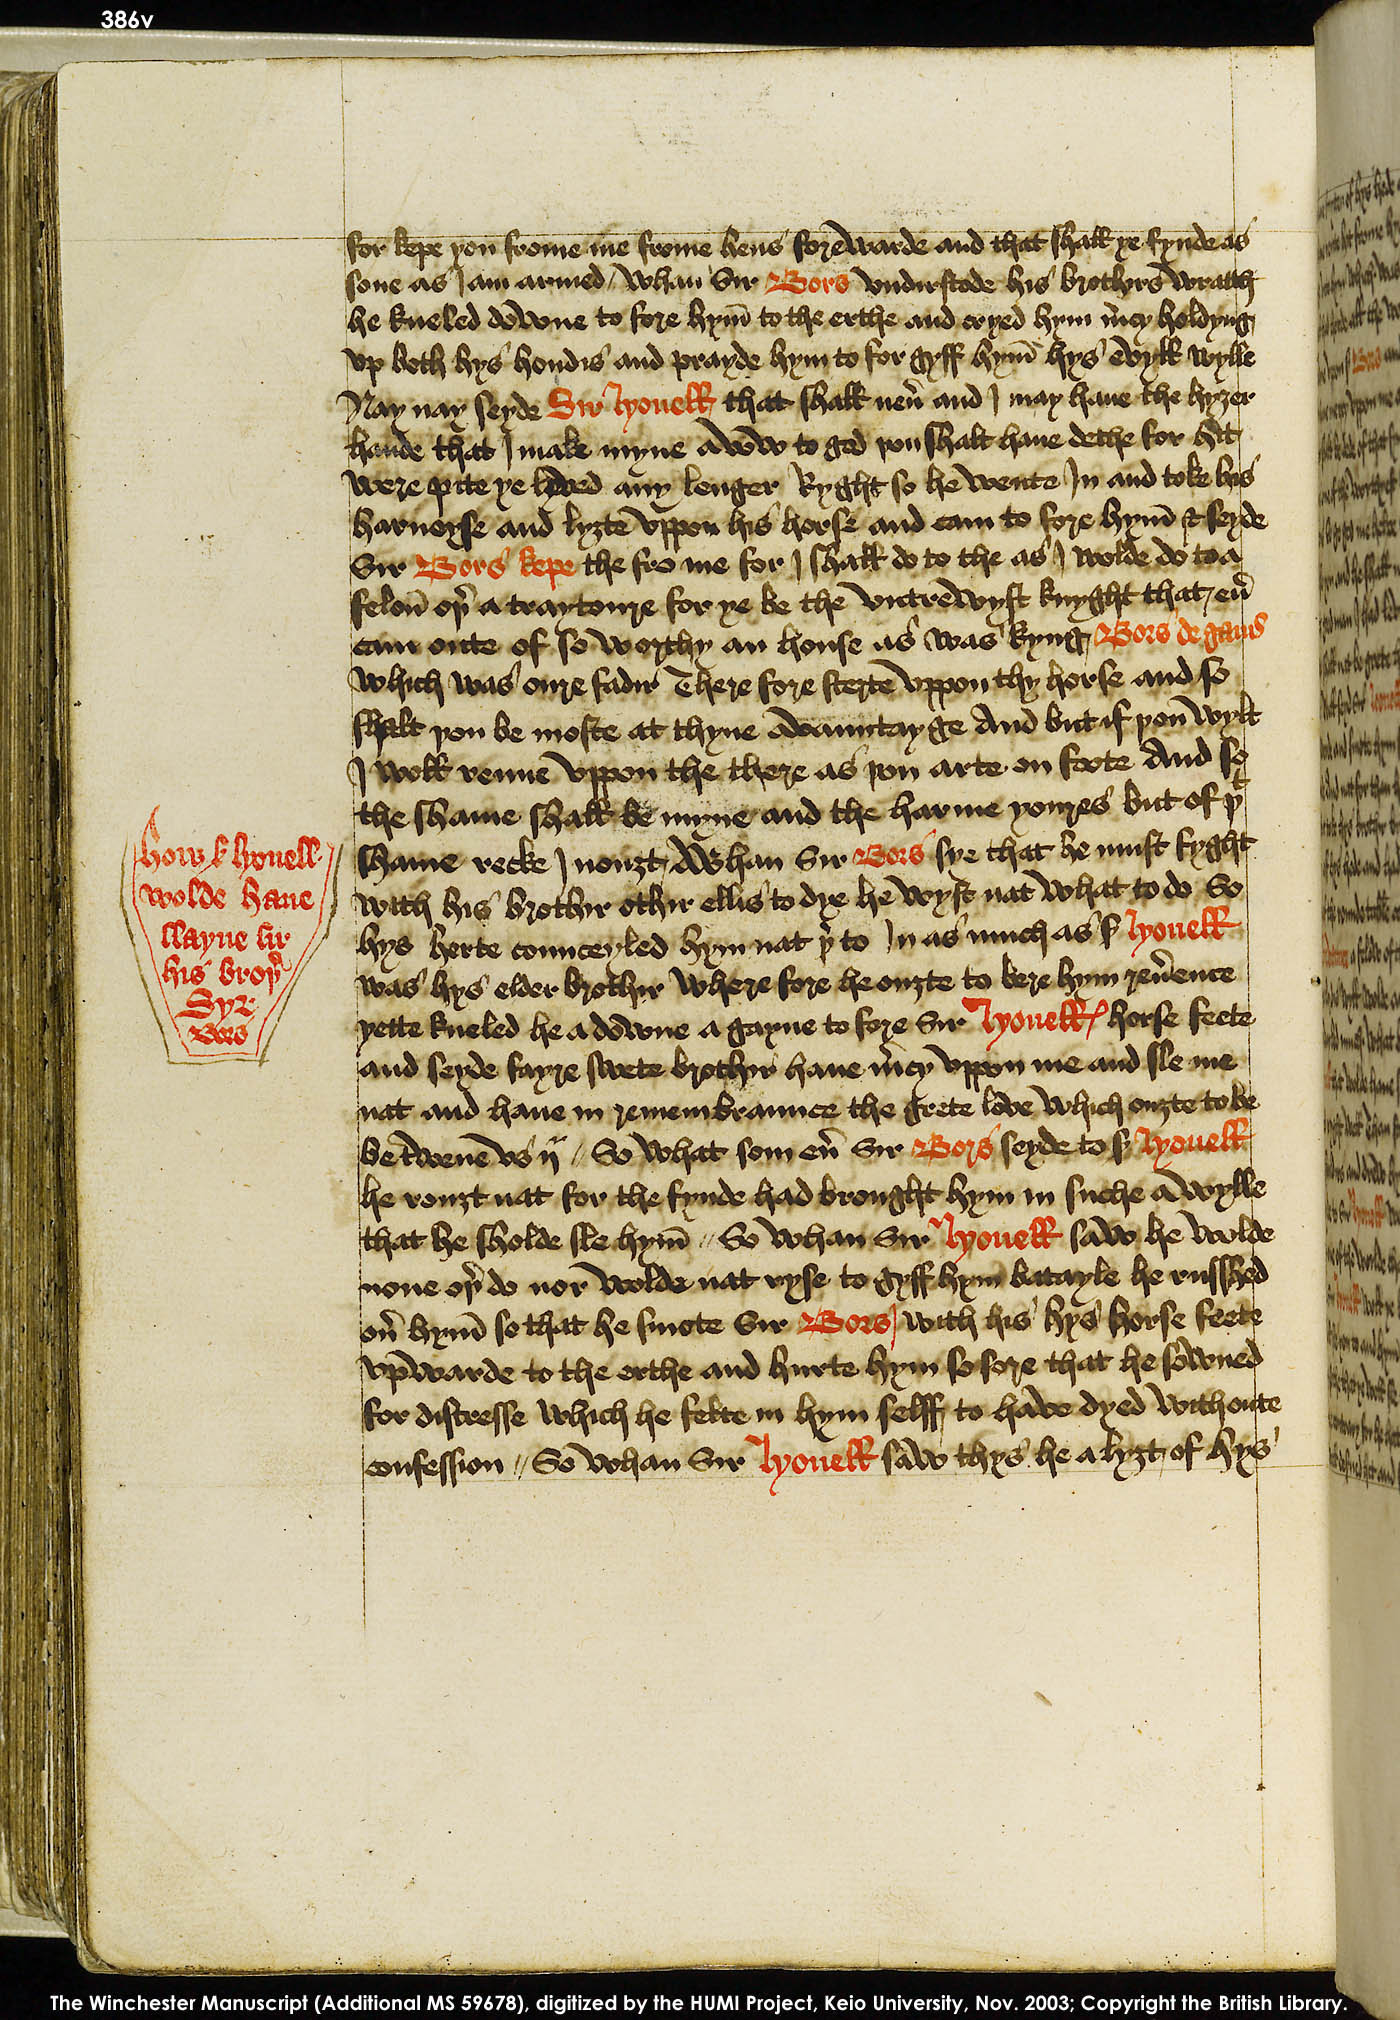 386v
for kepe you frome me frome hens forewarde and that shall ye fynde as
sone as I am armed / Whan Sir Bors vndirstode his brothirs wratth
he kneled downe to fore hym̄ to the erthe and cryed hym m̉cy holdyng
vp both hys hondis and prayde hym to for gyff hym̄ hys evyll wylle
Nay nay seyde Sir Lyonell that shall neủ and I may haue the hyȝer
hande that I make myne avow to god þou shalt haue dethe for hit
were pite ye lyved any lenger Ryght so he wente In and toke his
harneyse and lyȝte vppon his horse and cam to fore hym̄ & seyde
Sir Bors kepe the fro me for I shall do to the as I wolde do to a
felon̄ oþ̉ a traytoure for ye be the vntrewyst knyght that eủ
cam oute of so worthy an house as was kyng Bors de ganis
which was oure fadir There fore sterte vppon thy horse and so
shalt þou be moste at thyne avauntayge And but if þou wylt
I woll renne vppon the there as þou arte on foote And so
the shame shall be myne and the harme youres but of þᵗ
shame recke I nouȝt / Whan Sir Bors sye that he must fyght
with his brothir othir ellis to dye he wyst nat what to do So
hys herte counceyled hym nat þ̉ to In as much as ẜ Lyonell
was hys elder brothir where fore he ouȝte to bere hym reủence
yette kneled he a downe a gayne to fore Sir Lyonell horse feete
and seyde fayre swete brothir haue m̉cy vppon me and sle me
nat and haue in remembraunce the grete love which ouȝte to be
be twene vs ij // So what som eủ Sir Bors seyde to ẜ Lyonell
he rouȝt nat for the fynde had brought hym in suche a wylle
that he sholde sle hym̄ // So whan Sir Lyonell saw he wolde
none oþ̉ do nor wolde nat ryse to gyff hym batayle he russhed
oủ hym̄ so that he smote Sir Bors with his hys horse feete
vpwarde to the erthe and hurte hym so sore that he sowned
for distresse which he felte in hym selff to have dyed withoute
confession // So whan Sir Lyonell saw thys he a lyȝt of hys
how ẜ lyonell
wolde haue
slayne sir
his broþ̉
Syr
Bors
The Winchester Manuscript (Additional MS 59678), digitized by the HUMI Project, Keio University, Nov. 2003; Copyright the British Library.